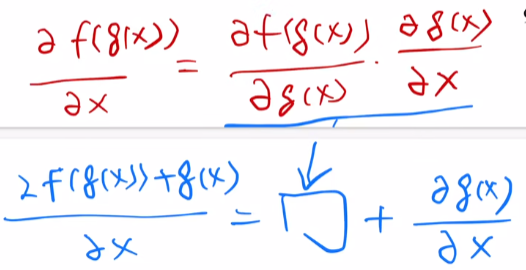 ∂f(g(x))/∂x = ∂f(g(x))/∂g(x) · ∂g(x)/∂x
∂f(g(x))+g(x)/∂x = □ + ∂g(x)/∂x